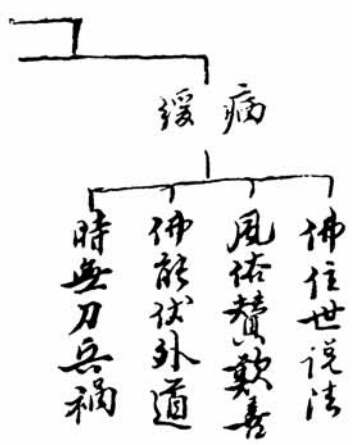 病緩
佛住世说法
風俗贊歎善
佛能伏外道
時無刀兵禍